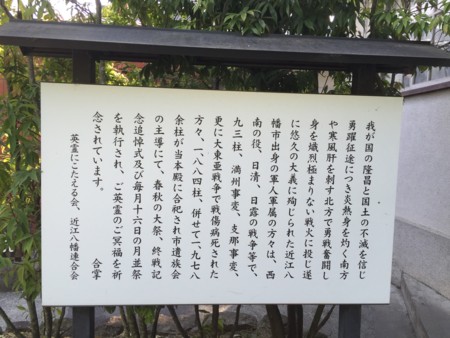 我が国の隆昌と国土の不滅を信じ
勇躍征途につき炎熱身を灼く南方
や寒風肝を刺す北方で勇戦奮闘し
身を熾烈極まりない戦火に投じ遂
に悠久の大義に殉じられた近江八
幡市出身の軍人軍属の方々は、西
南の役、日清、日露の戦争等で、
九三柱、満州事変、支那事変、
更に大東亜戦争で戦傷病死された
方々、一八八四柱、併せて一、九七八
余柱が当本殿に合祀され市遺族会
の主導にて、春秋の大祭、終戦記
念追悼式及び毎月十六日の月並祭
を執行され、ご英霊のご冥福を祈
念されています。　合掌
英霊にこたえる会、近江八幡連合会